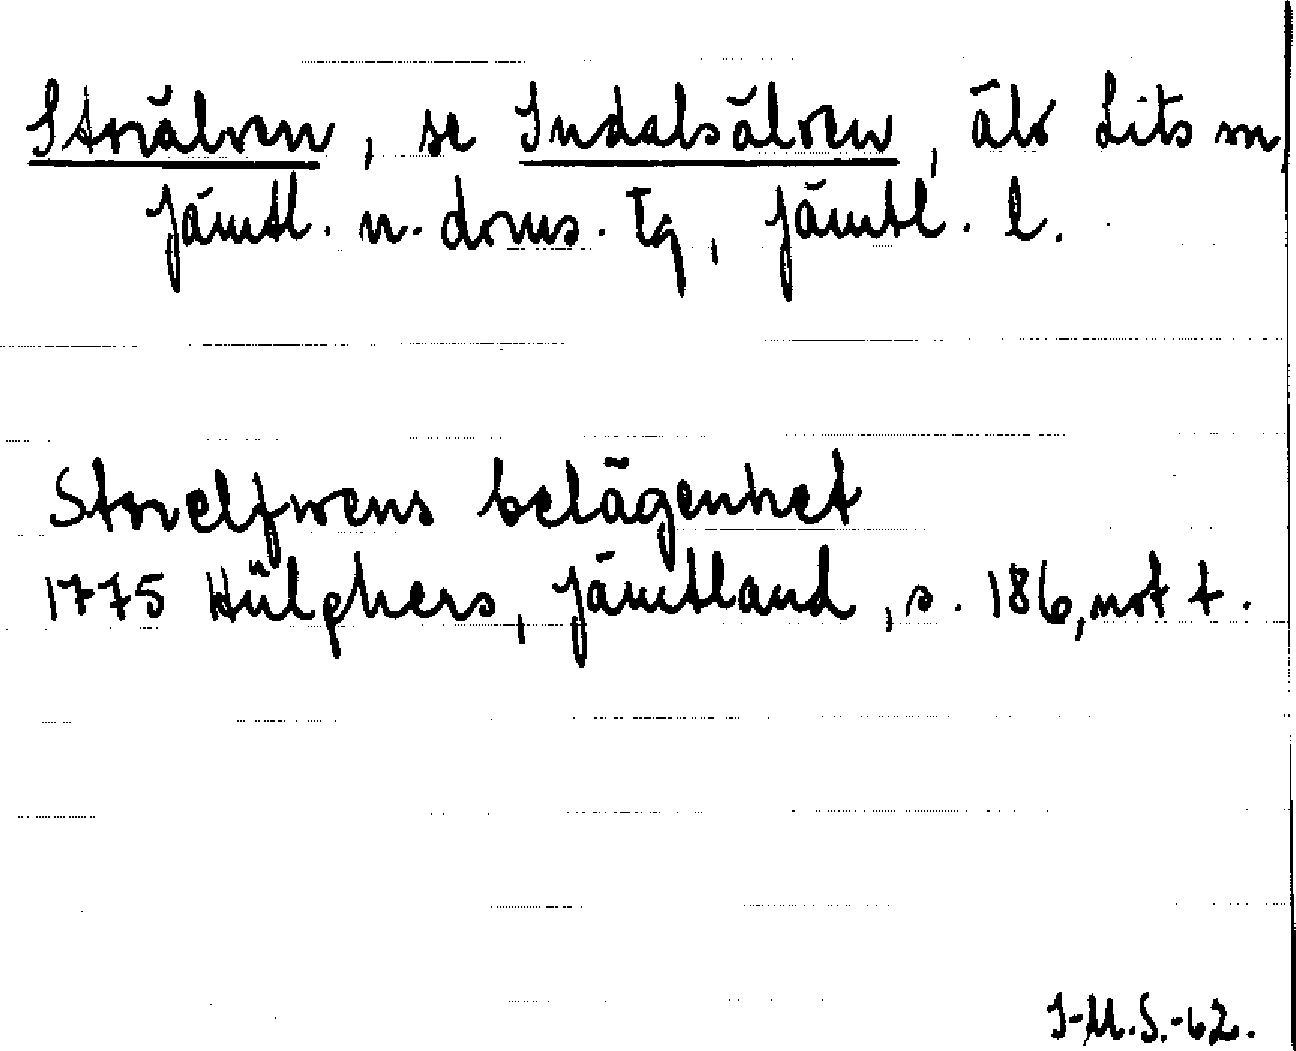 Storälven, se Indalsälven, älv Lits sn
Jämtl. n. doms. tg, Jämtl. l.
Storelfwens belägenhet
1775 Hülphers, Jämtland, s. 186, not t.
I-M.S.-62.